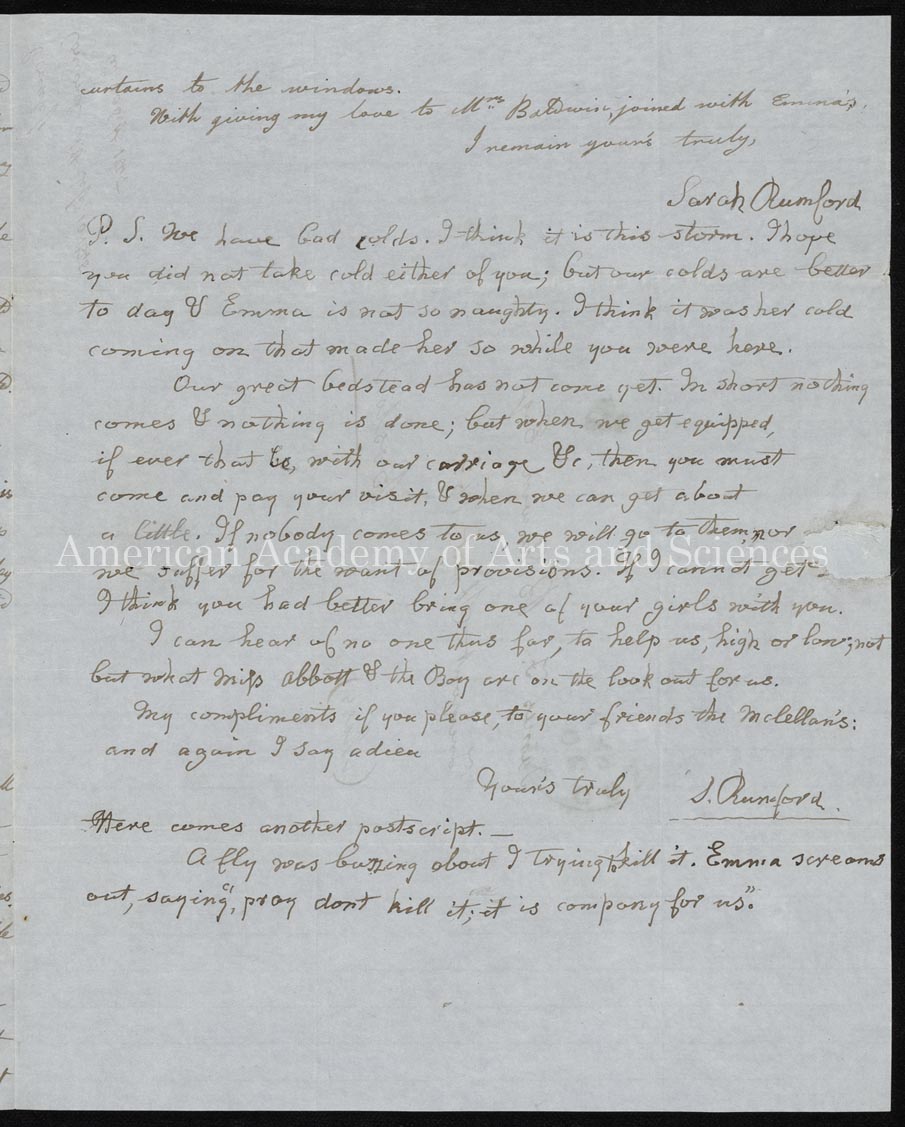 curtains to the windows.
With giving my love to Mrs Baldwin, joined with Emma's,
I remain your's truly,
Sarah Rumford
P. S. We have bad colds. I think it is this storm. I hope
you did not take cold either of you; but our colds are better
to day & Emma is not so naughty. I think it was her cold
coming on that made her so while you were here.
Our great bedstead has not come yet. In short nothing
comes & nothing is done; but when we get equipped,
if ever that be, with our carriage &c, then you must
come and pay your visit, & when we can get about
a little. If nobody comes to us we will go to them, nor
American Academy of Arts and Sciences
we suffer for the want of provisions. If I cannot get
I think you had better bring one of your girls with you.
I can hear of no one thus far, to help us, high or low; not
but what Miss Abbott & the Boy are on the look out for us.
My compliments if you please, to your friends the Mclellan's:
and again I say adieu
Your's truly S. Rumford.
Here comes another postscript. —
A fly was buzzing about I trying to kill it. Emma screams
out, saying, "pray dont kill it; it is company for us".